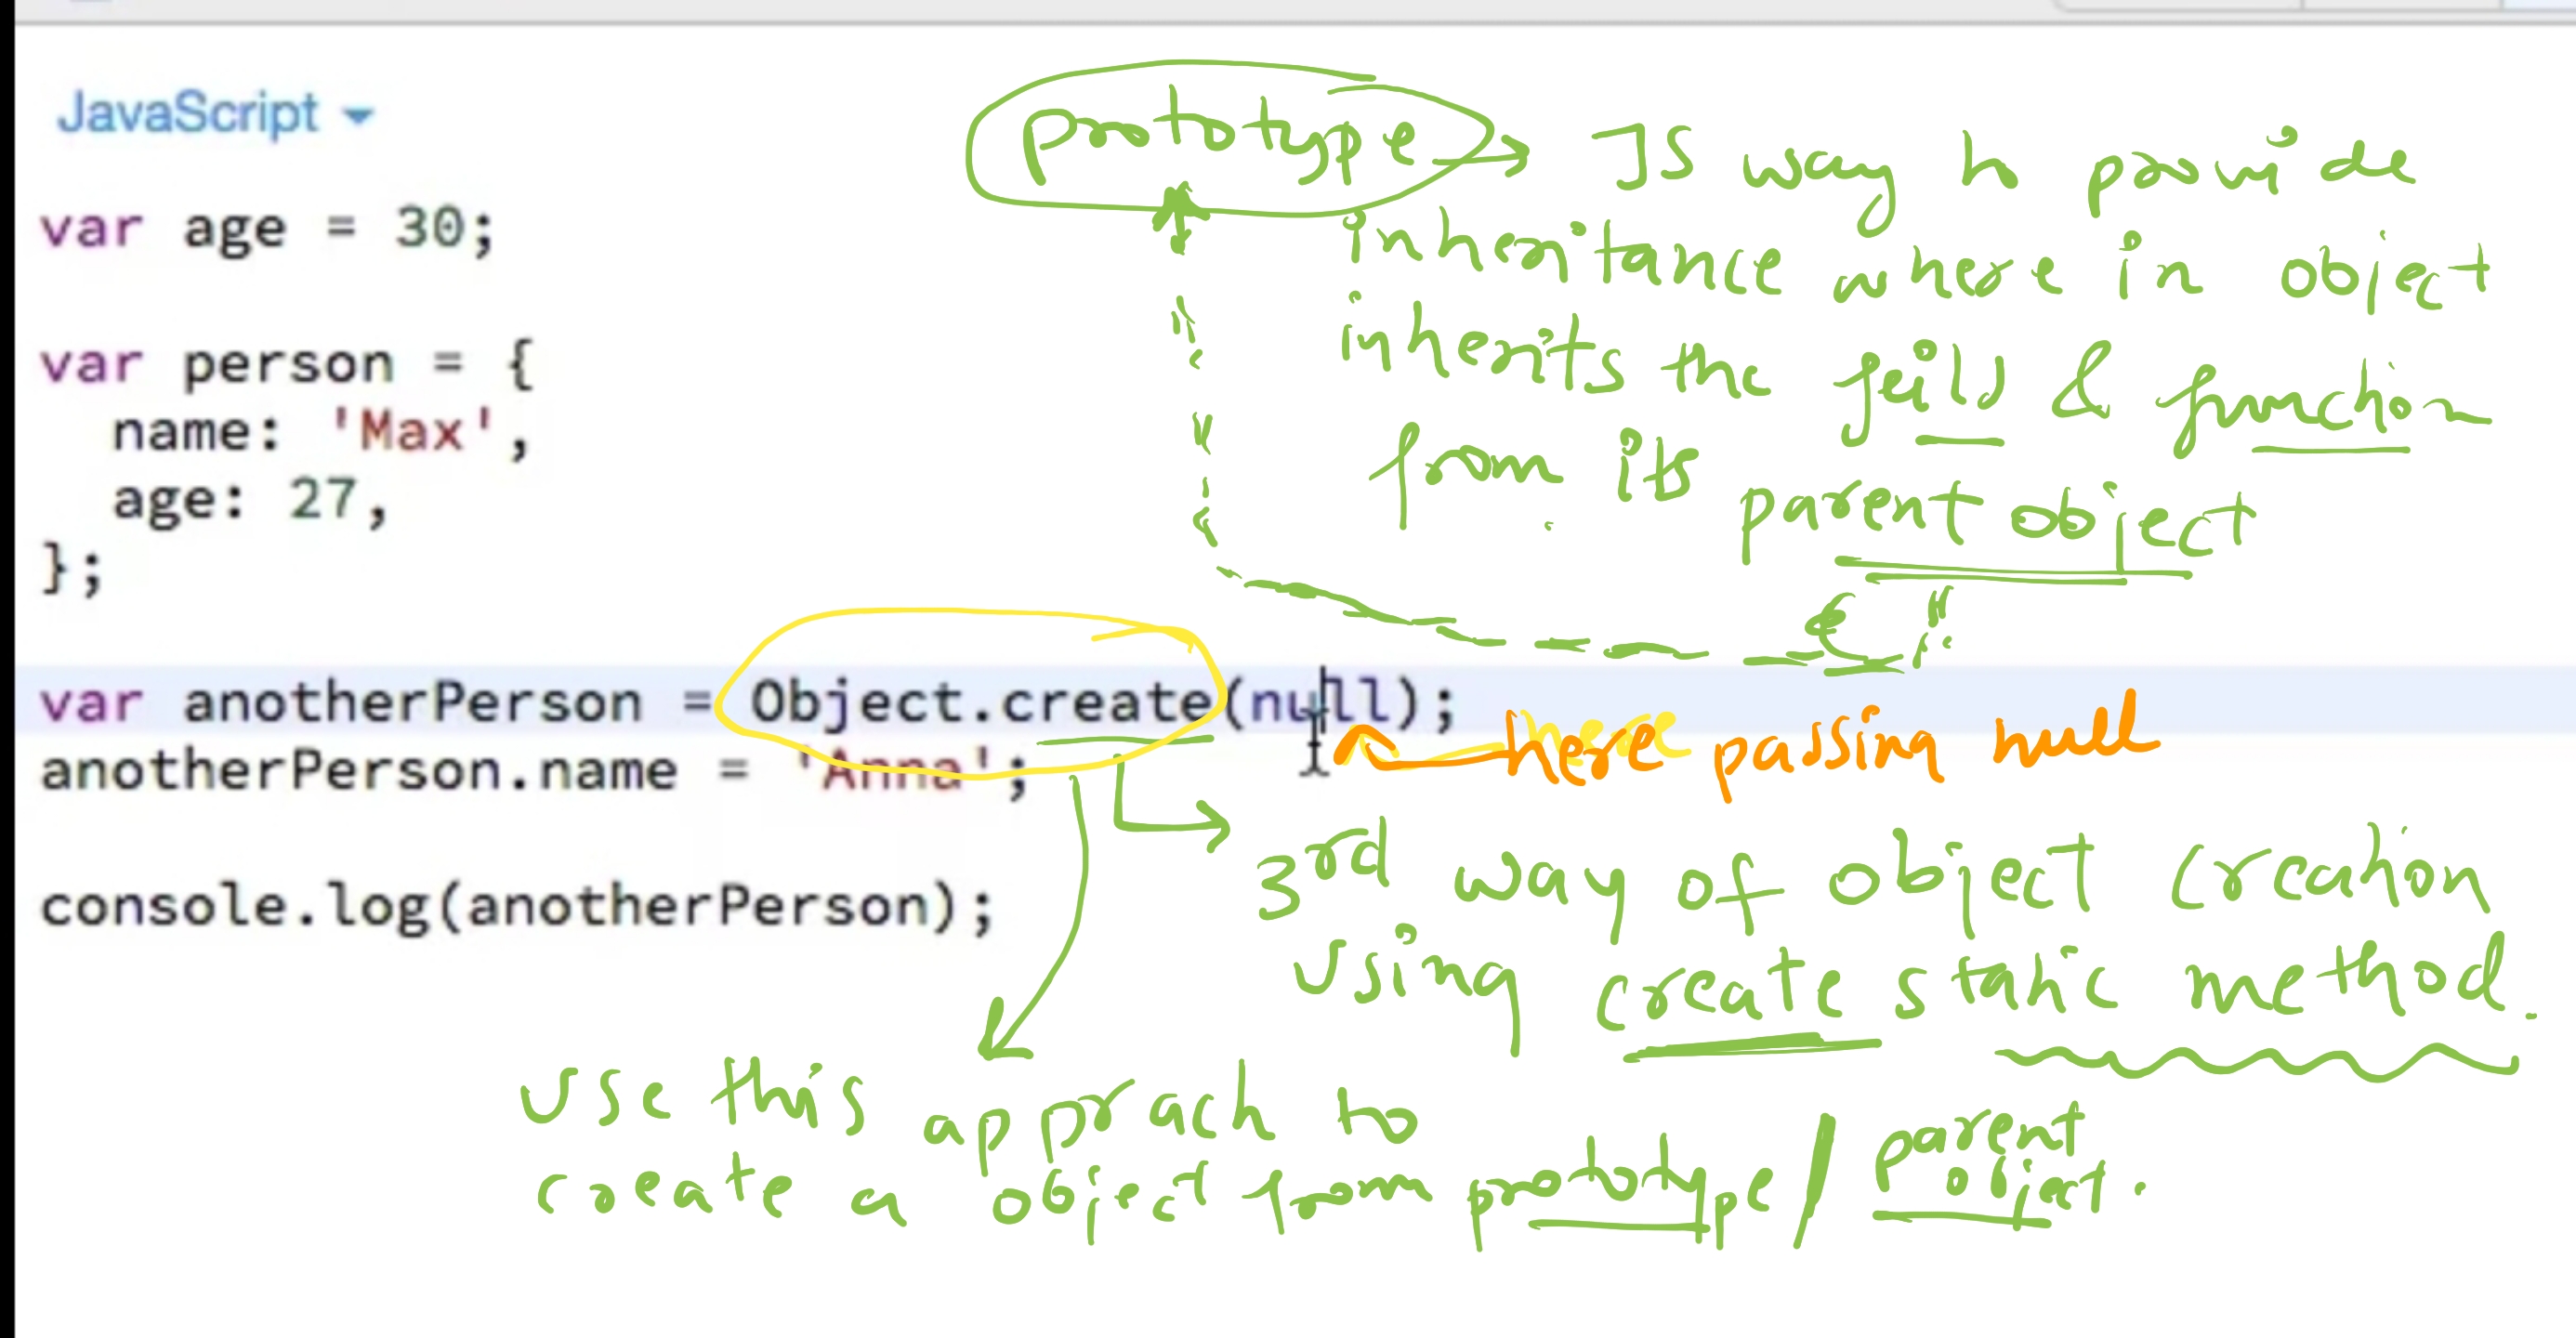 JavaScript
var age = 30;
var person = {
name: 'Max',
age: 27,
};
var anotherPerson = Object.create(null);
anotherPerson.name = 'Anna';
console.log(anotherPerson);
prototype → JS way to provide
inheritance where in object
inherits the feild & function
from its parent object
here passing null
3rd way of object creation
using create static method.
Use this apprach to
create a object from prototype / parent
object.